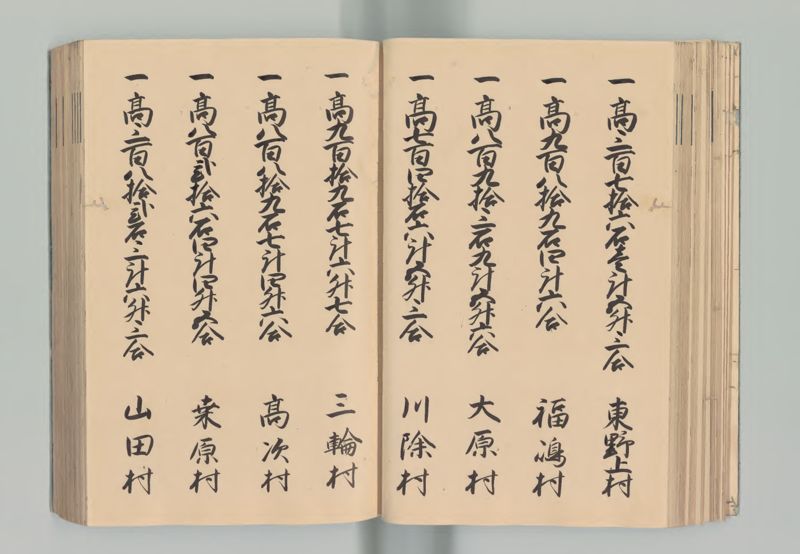 一高三百七拾六石壱斗五升三合 東野上村
一高九百八拾九石四斗六合 福嶋村
一高八百九拾三石九斗五升六合 大原村
一高七百四拾石六斗五升三合 川除村
一高九百拾九石七斗六升七合 三輪村
一高八百八拾九石七斗四升六合 高次村
一高八百弐拾六石四斗四升五合 桒原村
一高三百八拾弐石三斗六升三合 山田村